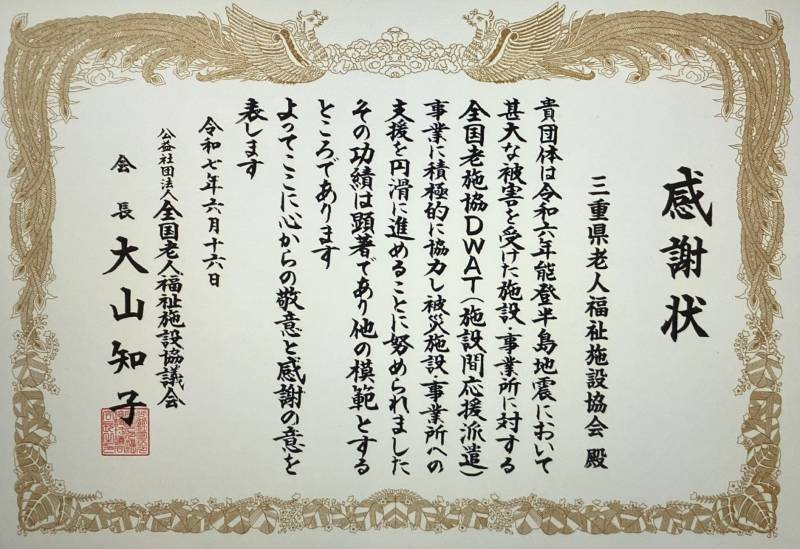 感謝状
三重県老人福祉施設協会 殿
貴団体は令和六年能登半島地震において
甚大な被害を受けた施設・事業所に対する
全国老施協DWAT(施設間応援派遣)
事業に積極的に協力し被災施設・事業所への
支援を円滑に進めることに努められました
その功績は顕著であり他の模範とする
ところであります
よってここに心からの敬意と感謝の意を
表します
令和七年六月十六日
公益社団法人 全国老人福祉施設協議会
会長 大山知子